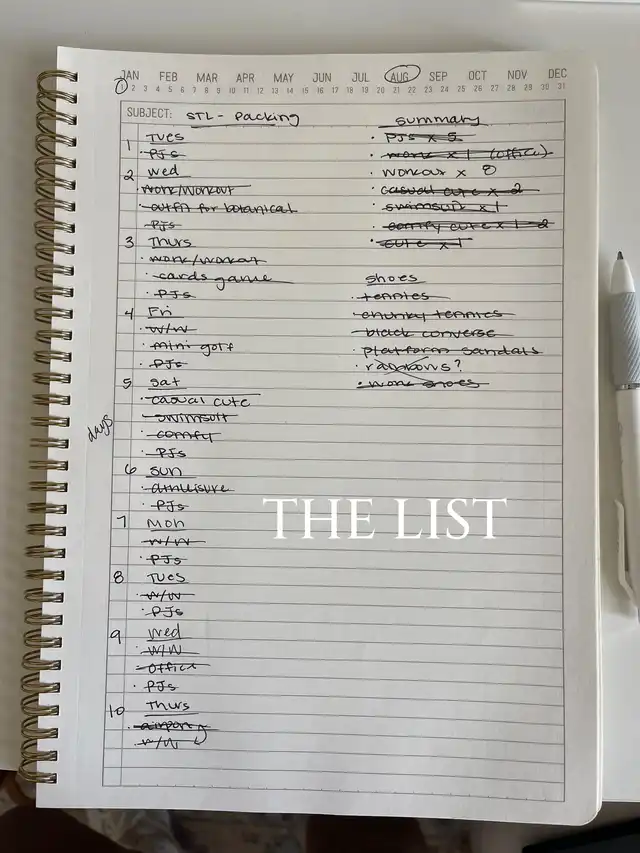 JAN FEB MAR APR MAY JUN JUL AUG SEP OCT NOV DEC
1 2 3 4 5 6 7 8 9 10 11 12 13 14 15 16 17 18 19 20 21 22 23 24 25 26 27 28 29 30 31
SUBJECT: STL - Packing
1 Tues
· PJs
2 Wed
· work/workout
· outfit for botanical
· PJs
3 Thurs
· work/workout
· cards game
· PJs
4 Fri
· W/W
· mini golf
· PJs
5 Sat
· casual cute
· swimsuit
· comfy
· PJs
days
6 Sun
· athleisure
· PJs
7 Mon
· W/W
· PJs
8 Tues
· W/W
· PJs
9 Wed
· W/W
· office
· PJs
10 Thurs
· airport
· W/W
summary
· PJs x 5
· work x 1 (office)
· workout x 8
· casual cute x 2
· swimsuit x 1
· comfy cute x 1-2
· cute x 1
shoes
· tennies
· chunky tennies
· black converse
· platform sandals
· rainbows?
· work shoes
THE LIST